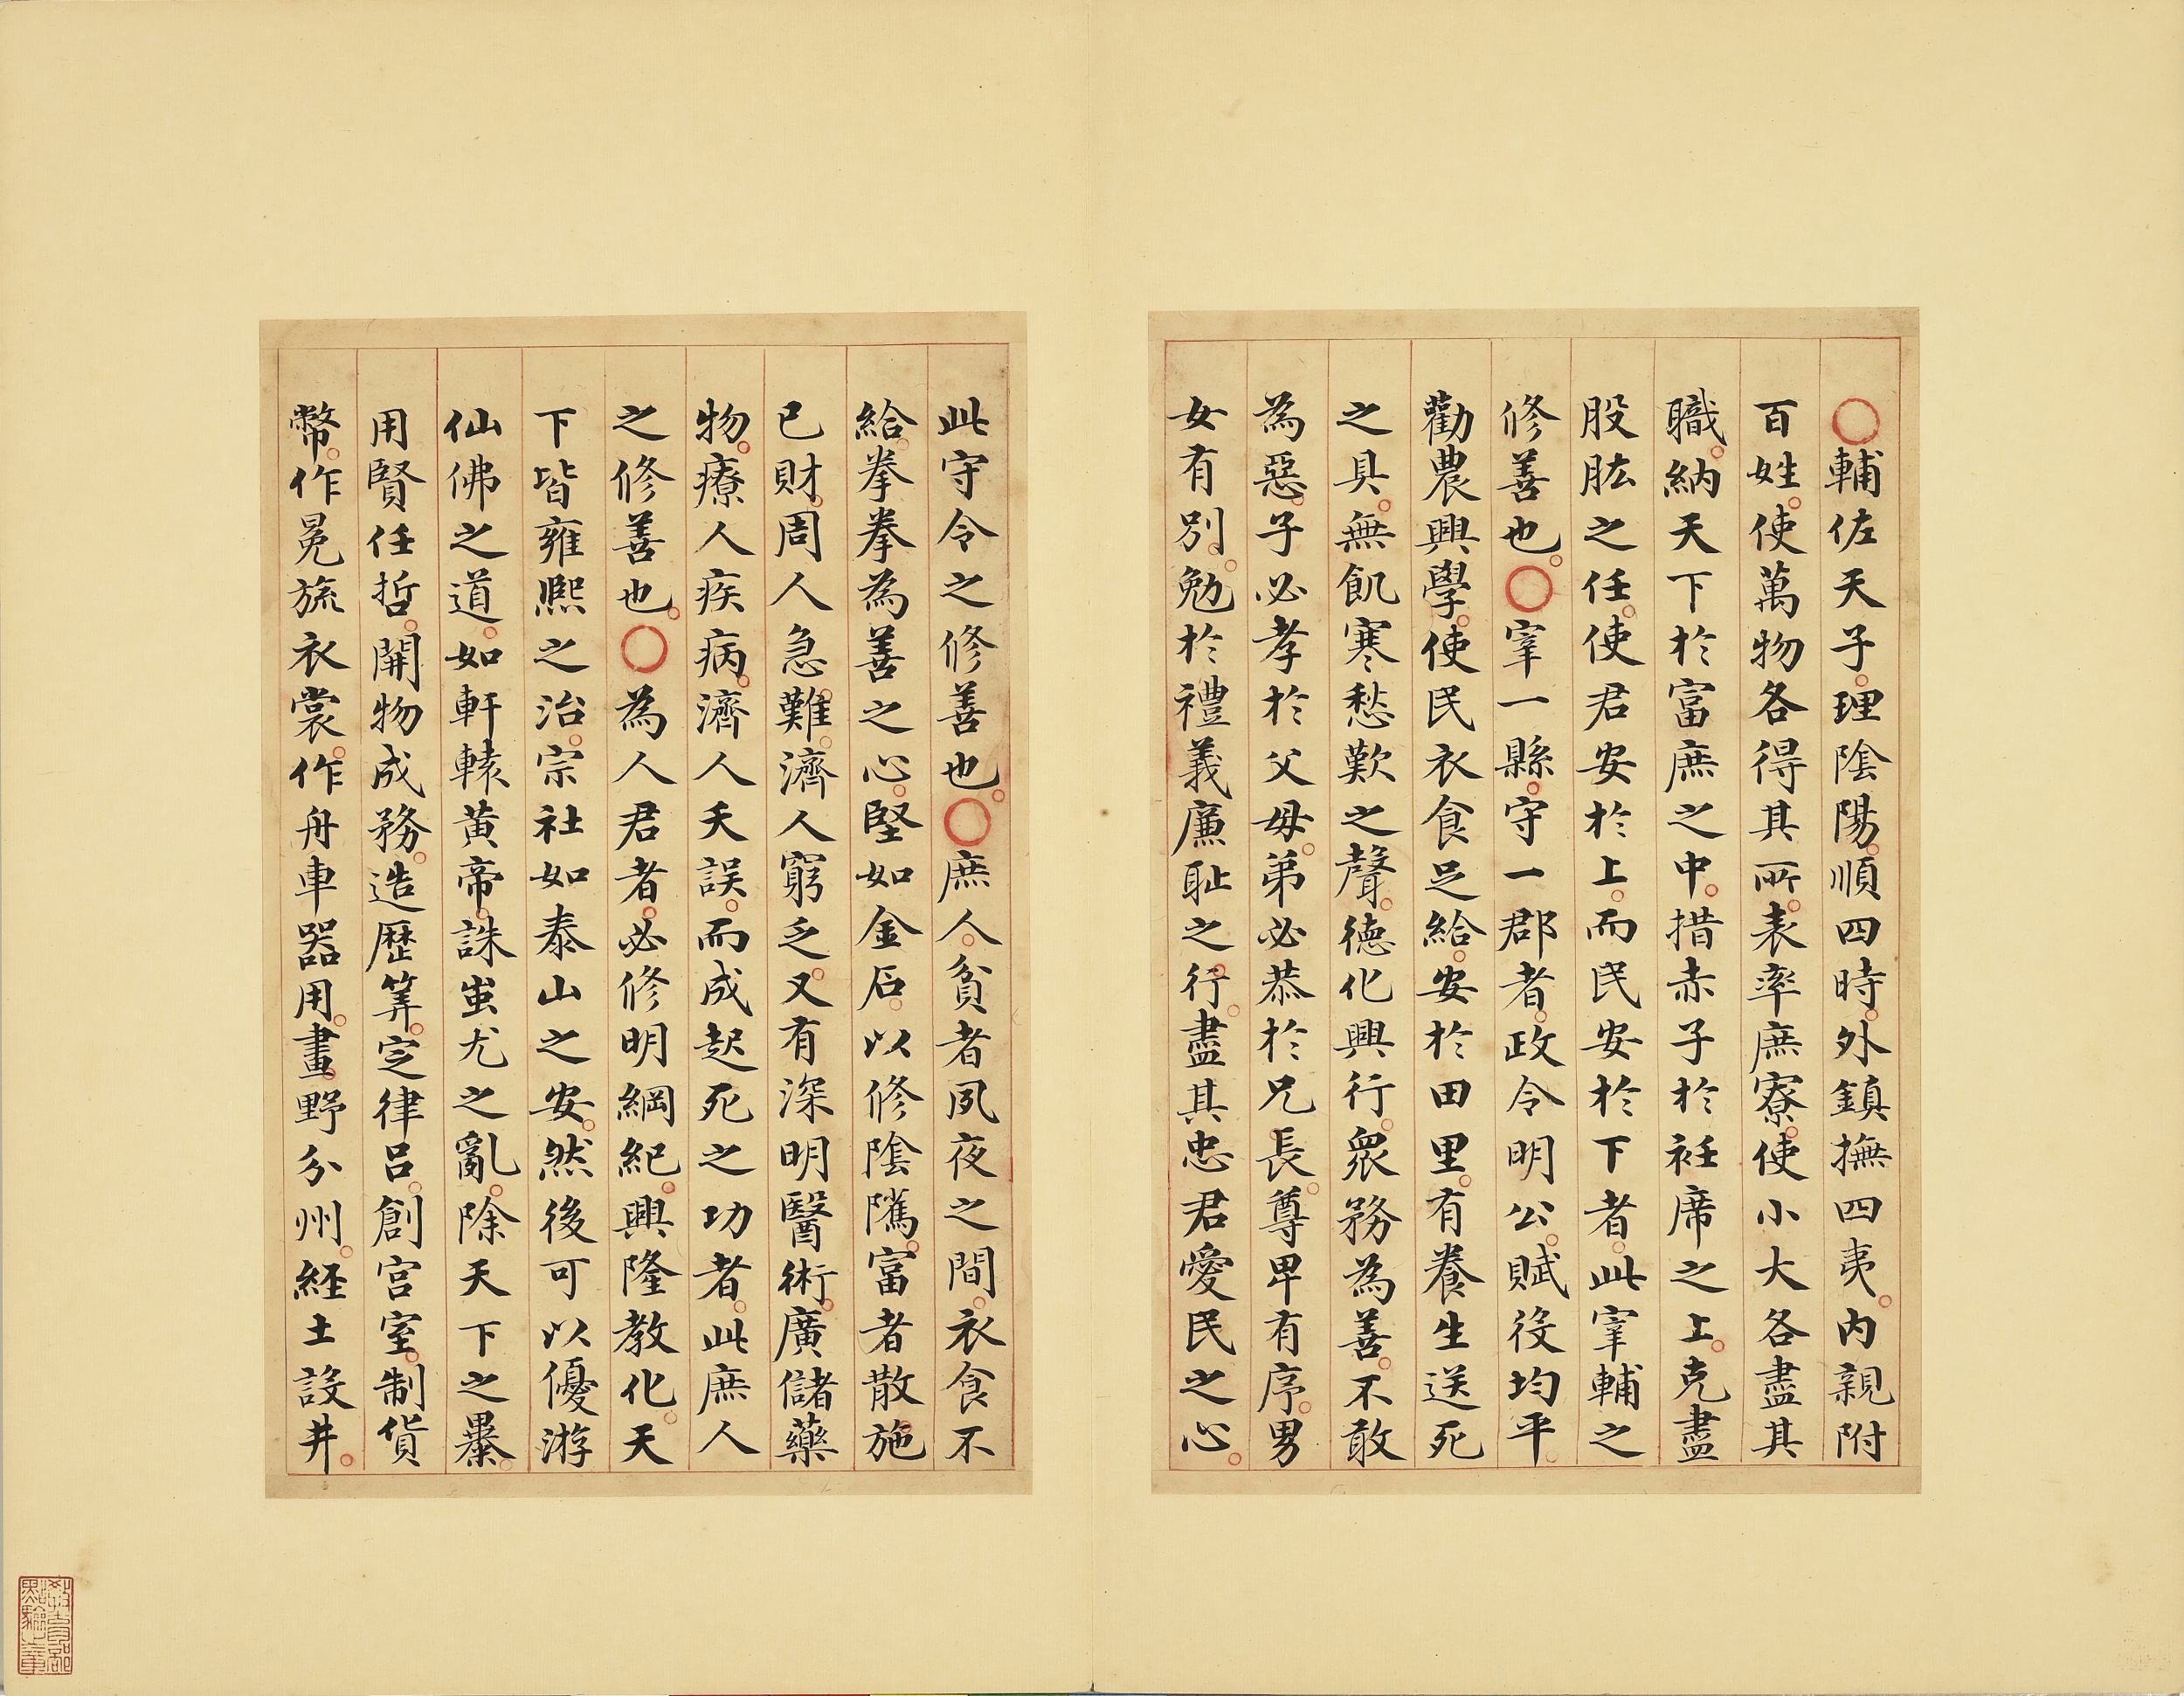 ○輔佐天子理陰陽順四時外鎮撫四夷內親附
百姓使萬物各得其所表率庶寮使小大各盡其
職納天下於富庶之中措赤子於衽席之上克盡
股肱之任使君安於上而民安於下者此宰輔之
修善也○宰一縣守一郡者政令明公賦役均平
勸農興學使民衣食足給安於田里有養生送死
之具無飢寒愁歎之聲德化興行眾務為善不敢
為惡子必孝於父母弟必恭於兄長尊卑有序男
女有別勉於禮義廉恥之行盡其忠君愛民之心
此守令之修善也○庶人貧者夙夜之間衣食不
給拳拳為善之心堅如金石以修陰隲富者散施
己財周人急難濟人窮乏又有深明醫術廣儲藥
物療人疾病濟人夭誤而成起死之功者此庶人
之修善也○為人君者必修明綱紀興隆教化天
下皆雍熙之治宗社如泰山之安然後可以優游
仙佛之道如軒轅黃帝誅蚩尤之亂除天下之暴
用賢任哲開物成務造歷筭定律呂創宮室制貨
幣作冕旒衣裳作舟車器用畫野分州經土設井